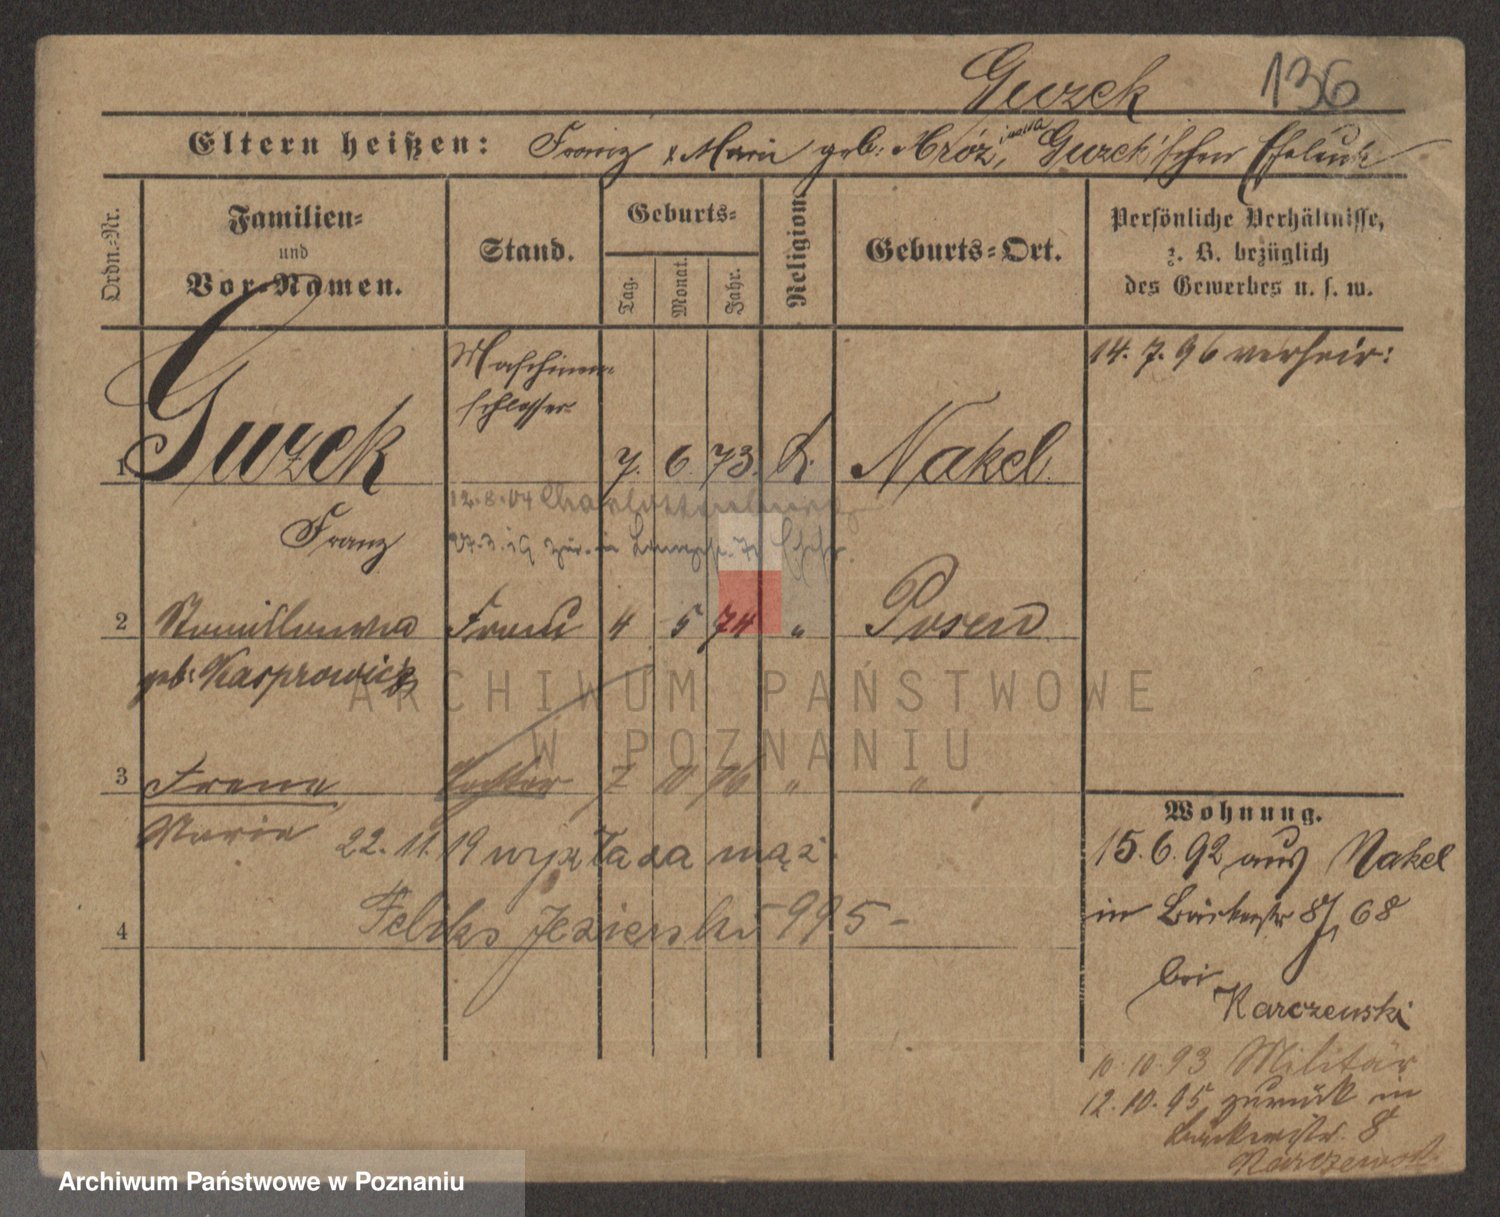 Guzek 136
Eltern heißen: Franz & Marie geb. Mróz, Guzek'schen Eheleute
Ordn.-Nr.
Familien-
und
Vor-Namen.
Stand.
Geburts-
Tag.
Monat.
Jahr.
Religion
Geburts-Ort.
Persönliche Verhältnisse,
z. B. bezüglich
des Gewerbes u. s. w.
14. 7. 96 verheir:
Maschinen-
schlosser
1 Guzek 7. 6. 73. k. Nakel
12.8.04 Charlottenburg
Franz 27.3.19 zur. in
2 Stanislawa Frau 4 5 74 " Posen
geb. Kasprowicz
3 Irene Tochter 7 10 96 " "
Maria
22. 11. 19 wyszła za mąż
4 Feliks Jezierski 995-
Wohnung.
15. 6. 92 aus Nakel
in Bäckerstr 8/, 68
bei
Karczewski
10. 10. 93 Militär
12. 10. 95 zurück in
Bäckerstr. 8
Karczewski
ARCHIWUM PAŃSTWOWE
W POZNANIU
Archiwum Państwowe w Poznaniu